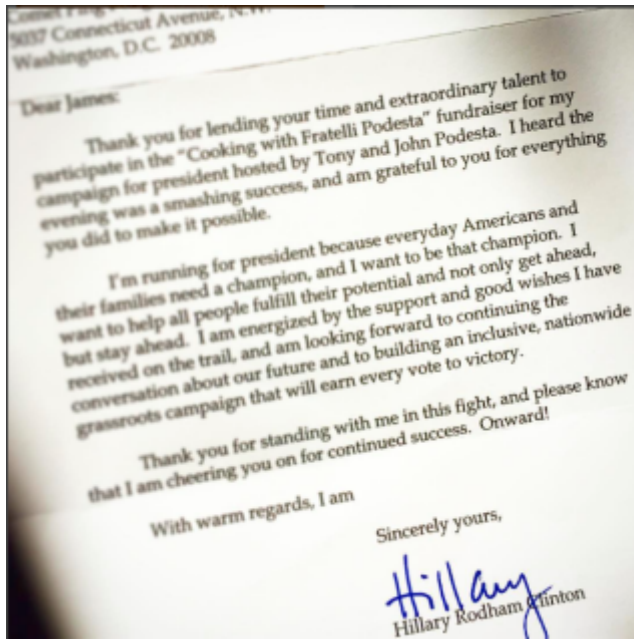 Comet Ping
5037 Connecticut Avenue, N.W.
Washington, D.C. 20008
Dear James:
Thank you for lending your time and extraordinary talent to
participate in the "Cooking with Fratelli Podesta" fundraiser for my
campaign for president hosted by Tony and John Podesta. I heard the
evening was a smashing success, and am grateful to you for everything
you did to make it possible.
I'm running for president because everyday Americans and
their families need a champion, and I want to be that champion. I
want to help all people fulfill their potential and not only get ahead,
but stay ahead. I am energized by the support and good wishes I have
received on the trail, and am looking forward to continuing the
conversation about our future and to building an inclusive, nationwide
grassroots campaign that will earn every vote to victory.
Thank you for standing with me in this fight, and please know
that I am cheering you on for continued success. Onward!
With warm regards, I am
Sincerely yours,
Hillary
Hillary Rodham Clinton